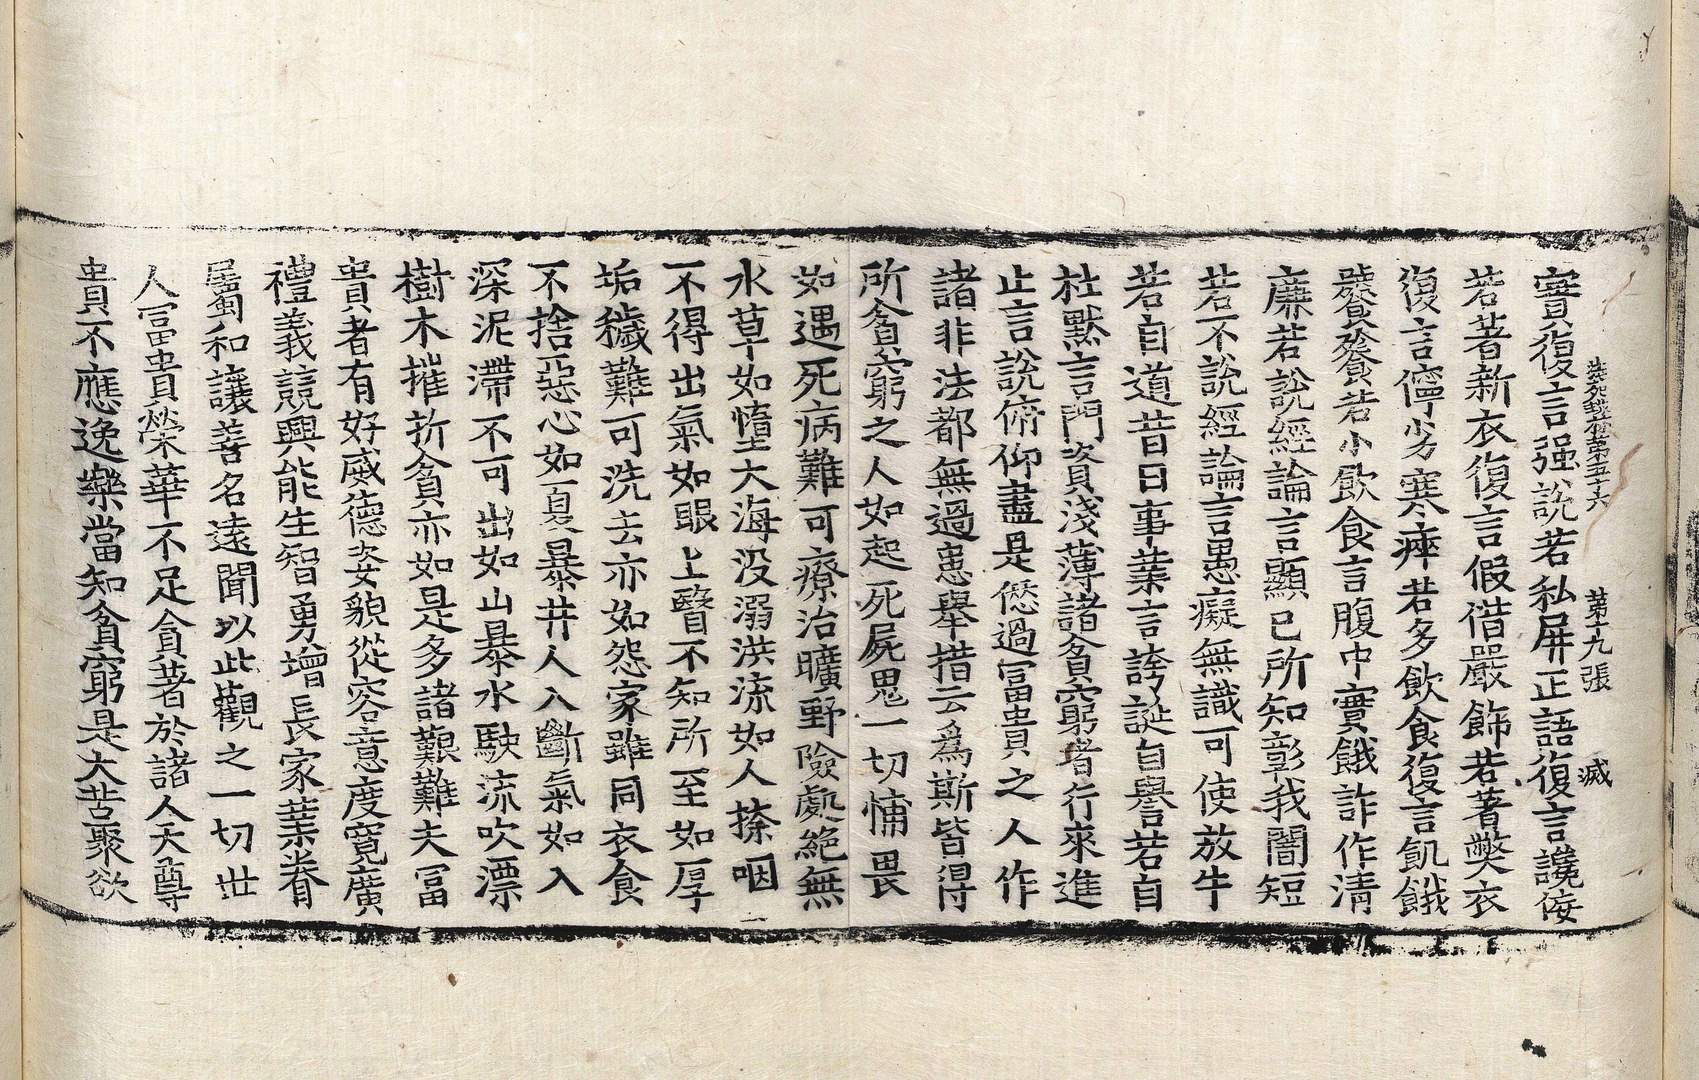 法苑珠林第五十六　第十九張　滅
實復言强說若私屏正語復言讒佞
若著新衣復言假借嚴飾若著弊衣
復言儜劣寒瘁若多飲食復言飢餓
饕餮若小飲食言腹中實餓詐作清
廉若說經論言顯已所知彰我闇短
若不說經論言愚癡無識可使放牛
若自道昔日事業言誇誕自譽若自
杜默言門資淺薄諸貧窮者行來進
止言說俯仰盡是愆過冨貴之人作
諸非法都無過患舉措云爲斯皆得
所貧窮之人如起死屍鬼一切怖畏
如遇死病難可療治曠野險處絕無
水草如墮大海没溺洪流如人捺咽
不得出氣如眼上瞖不知所至如厚
垢穢難可洗去亦如怨家雖同衣食
不捨惡心如夏暴井人入斷氣如入
深泥滯不可出如山暴水駛流吹漂
樹木摧折貧亦如是多諸艱難夫冨
貴者有好威德姿貌從容意度寬廣
禮義競興能生智勇增長家業眷
屬和讓善名遠聞以此觀之一切世
人冨貴榮華不足貪著於諸人天尊
貴不應逸樂當知貧窮是大苦聚欲